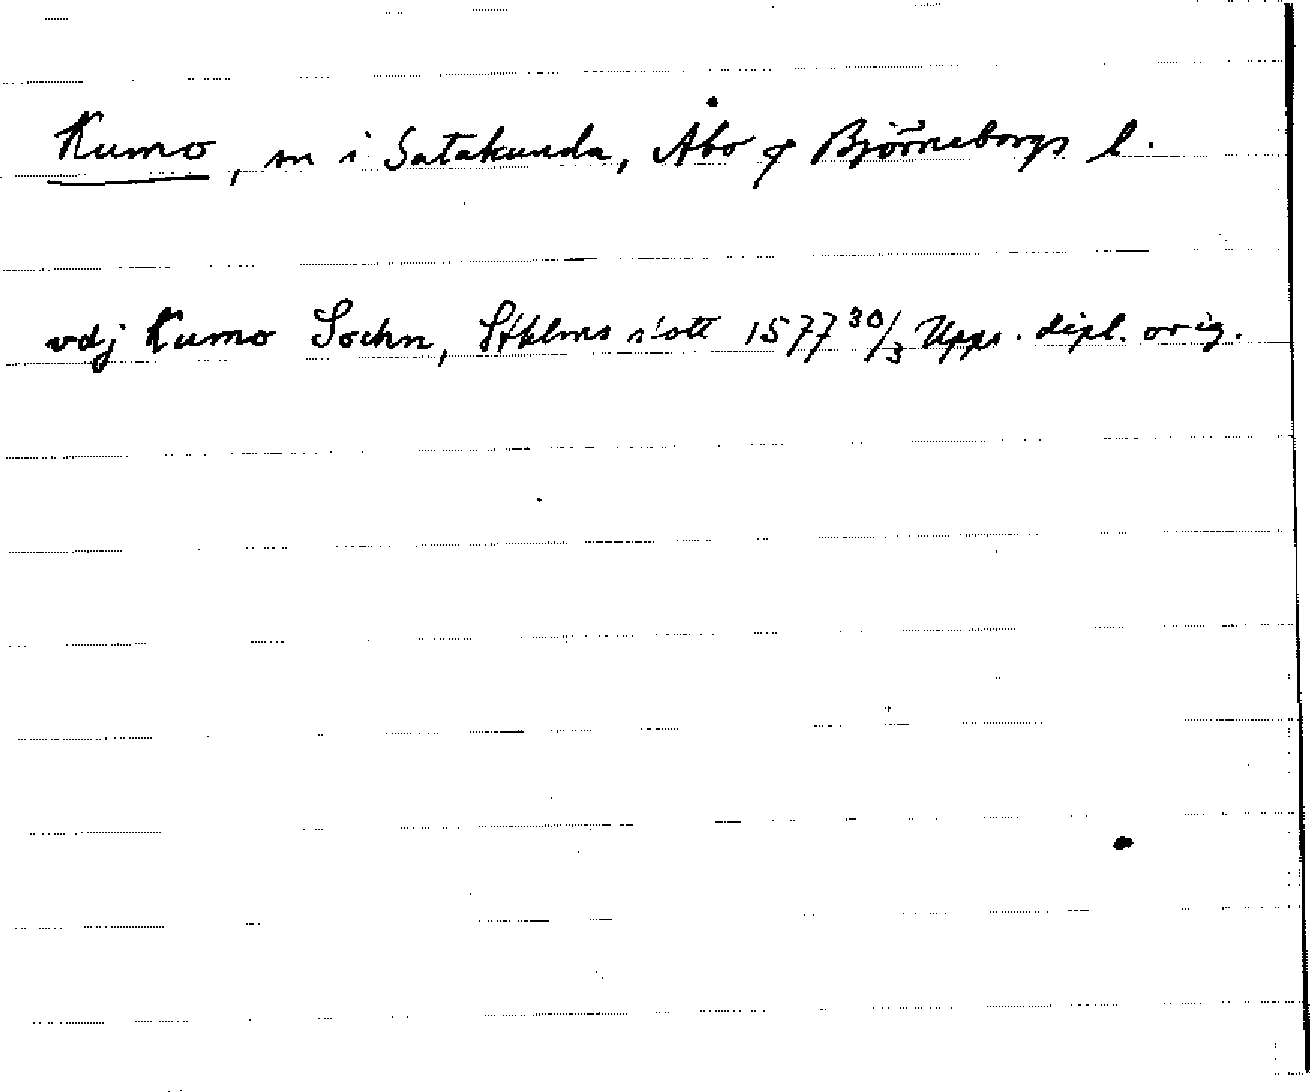 Kumo, sn i Satakunda, Åbo & Björneborgs l.
vdj Kumo Sochn, Sthlms slott 1577 30/3 Upps. dipl. orig.